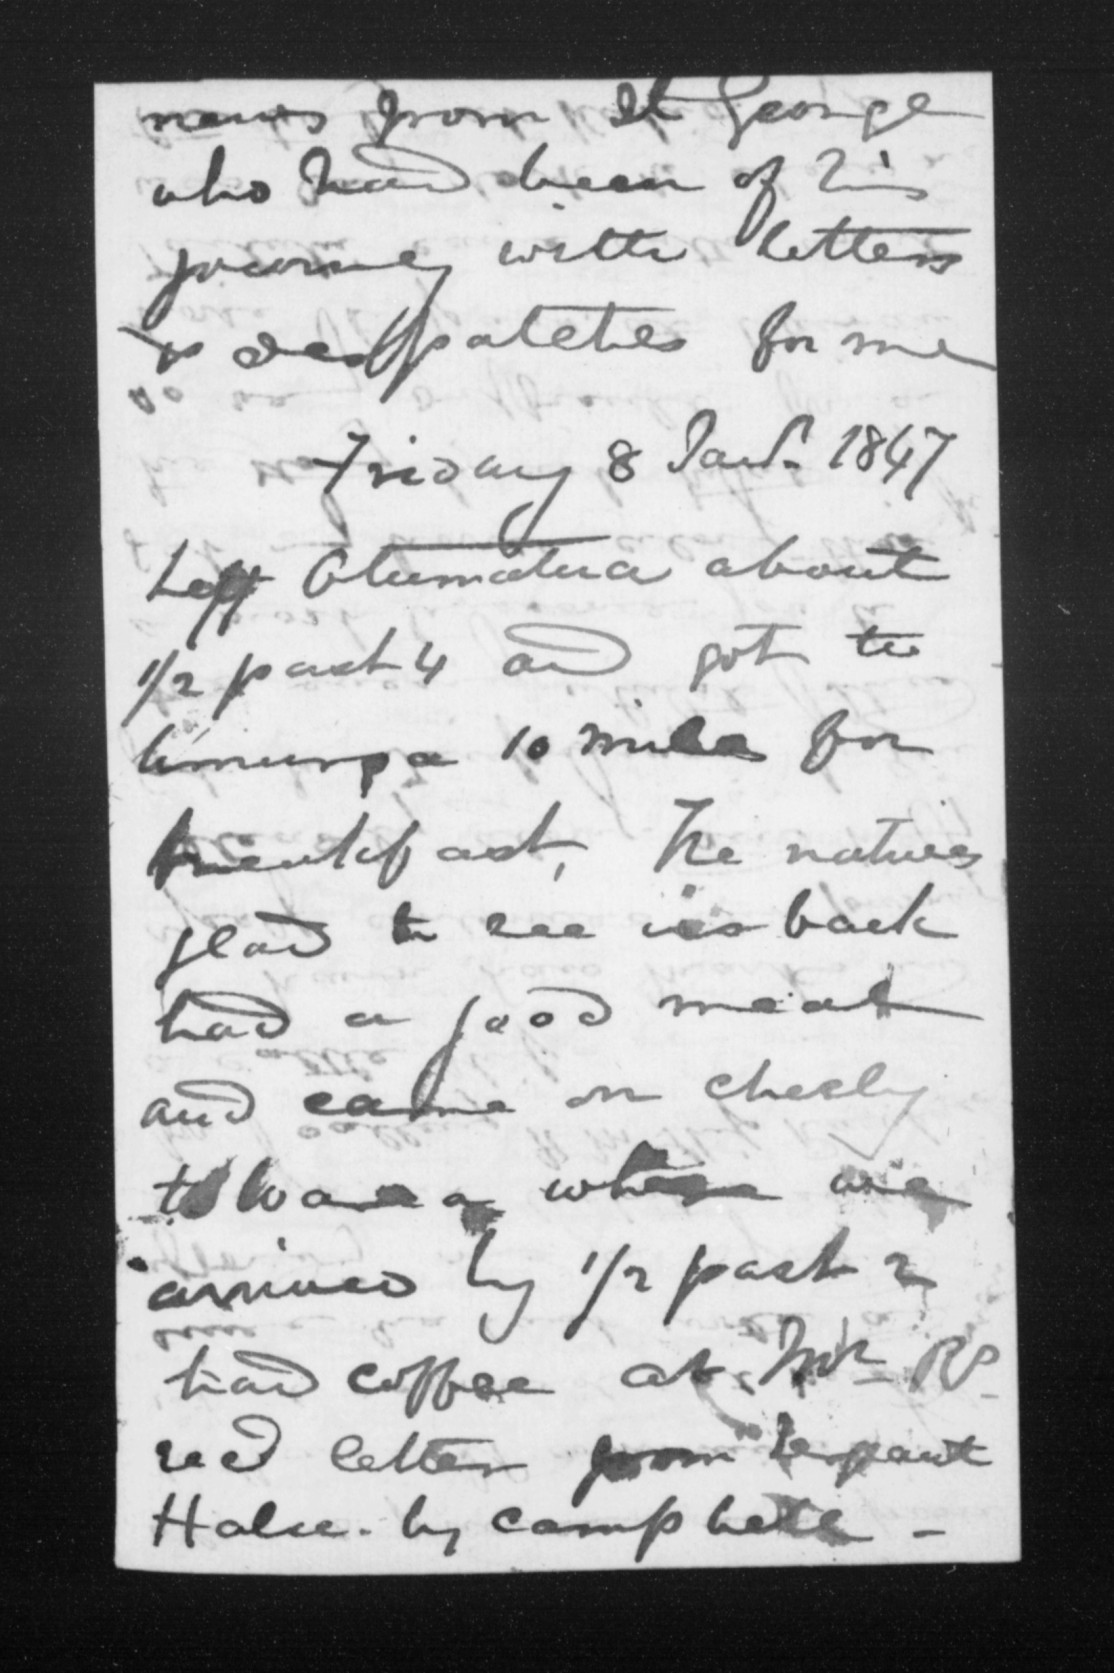 news from St George
who had been of his
journey with letters
& despatches for me
Friday 8 Jany. 1847
Left Otumatua about
1/2 past 4 and got to
Umuroa 10 miles for
breakfast, The natives
glad to see us back
had a good meal
and came on
to Warea where we
arrived by 1/2 past 2
had coffee at Mr Rs
recd letter from
Halse. by Campbell -